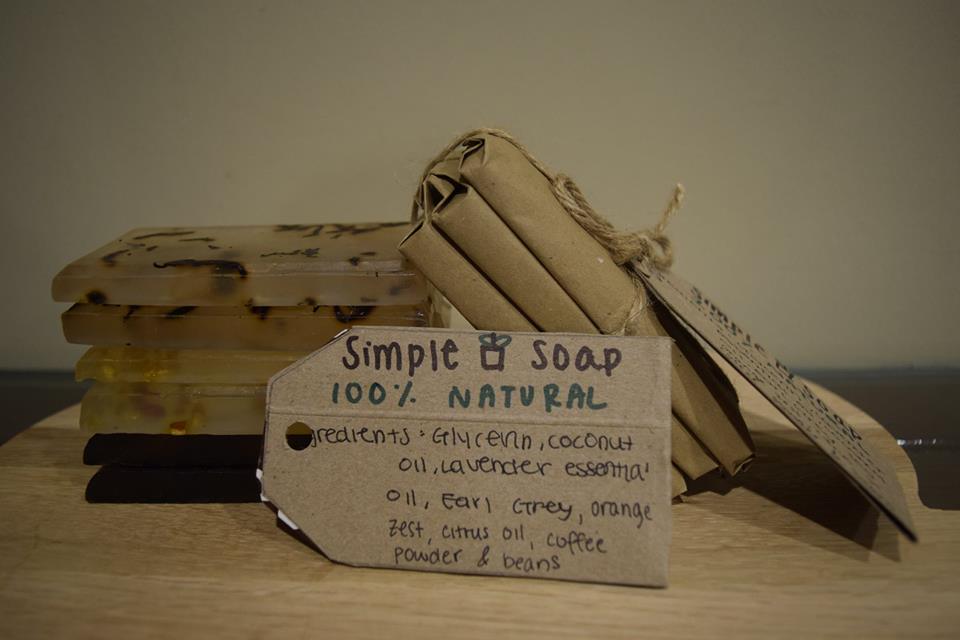 Simple Soap
100% NATURAL
gredients: Glycerin, coconut
oil, Lavender essential
oil, Earl Grey, orange
zest, citrus oil, coffee
powder & beans
Simple Soap